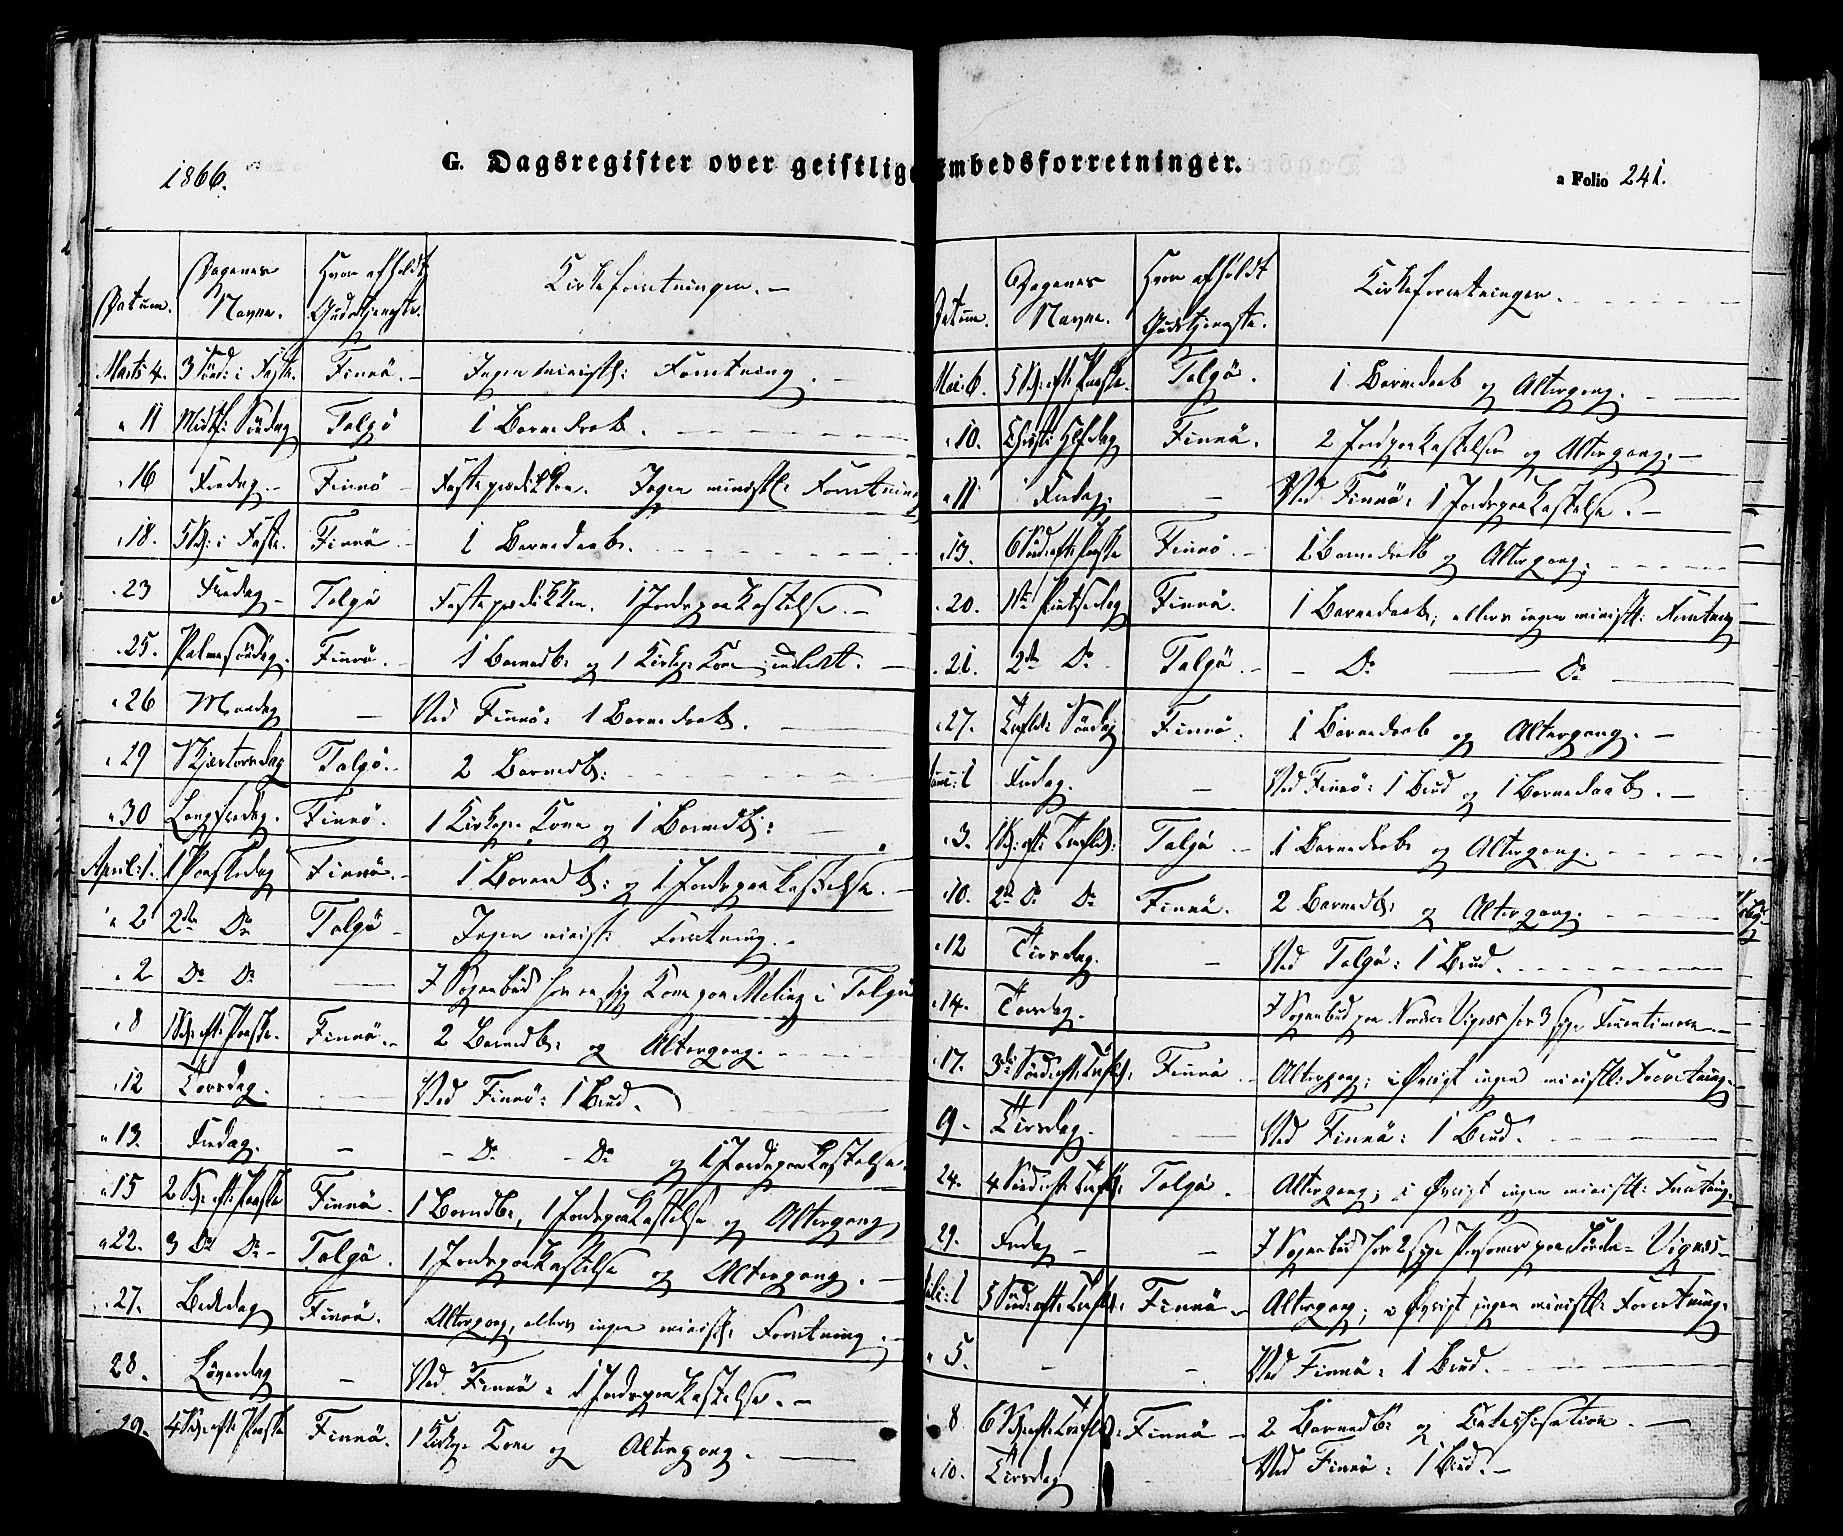 1866.
G. Dagsregister over geistlige Embedsforretninger.
a Folio 241.
Datum. Dagenes Navne. Hvor afholdt Gudstjeneste. Kirkeforretningen. -
Marts 4. 3 Sønd: i Faste. Finnö. - Ingen ministl: Forretning. -
" 11 Midtf: Söndag Talgö 1 Barnedaab.
" 16 Fredag. - Finnö - Fasteprædikken. Ingen ministl: Forretning
" 18. 5 S: i Faste. Finnö - 1 Barnedaab.
" 23 Fredag - Talgö Fasteprædikken. 1 Jordpaakastelse. -
" 25. Palmesöndag. Finnö. - 1 Barnedb: og 1 Kirkeg: Kone indledt. -
" 26 Mandag - Ved Finnö: 1 Barnedaab. -
" 29 Skjærtorsdag Talgö. - 2 Barnedb:
" 30 Langfredag. Finnö. 1 Kirkeg: Kone og 1 Barnedb: -
April: 1. 1 Paaskedag Finnö. - 1 Barnedb: og 1 Jordpaakastelse. -
" 2 2den Do Talgö - Ingen minist: Forretning. -
" 2 Do Do - I Sognebud hos en syg Kone paa Meling i Talgö
" 8 1 S: eft: Paaske. Finnö. - 2 Barnedb: og Altergang. -
" 12 Torsdag. - Ved Finnö: 1 Brud.
" 13. Fredag. - - Do - Do og 1 Jordpaakastelse.
" 15 2 S: eft: Paaske Finnö. 1 Barndb:, 1 Jordpaakastelse og Altergang
" 22. 3 Do Do - Talgö. 1 Jordpaakastelse og Altergang. -
" 27. Bededag Finnö. Altergang, ellers ingen minist: Forretning. -
28. Löverdag - Ved Finnö: 1 Jordpaakastelse. -
29. 4 S: eft: Paaske Finnö. 1 Kirkeg: Kone og Altergang. -
Datum. Dagenes Navne. Hvor afholdt Gudstjeneste. Kirkeforretningen.
Mai: 6. 5 S: eft: Paaske. Talgö. 1 Barnedaab og Altergang. -
" 10. Christi Hfdag Finnö. 2 Jordpaakastelser og Altergang. -
" 11 Fredag. - Ved Finnö: 1 Jordpaakastelse. -
" 13. 6 Sönd: eft: Paaske Finnö. - 1 Barnedaab og Altergang.
" 20. 1ste Pintsedag Finnö. 1 Barnedaab; ellers ingen ministl: Forretning
" 21. 2den Do - Talgö. - - Do - Do
" 27. Trefold: Söndag Finnö. 1 Barnedaab og Altergang. -
Juni: 1 Fredag. - Ved Finnö: 1 Brud og 1 Barnedaab. -
" 3. 1 S: eft: Trefold: Talgö - 1 Barnedaab og Altergang.
" 10. 2d Do Do Finnö. 2 Barnedb: og Altergang.
" 12 Tirsdag. - Ved Talgö: 1 Brud.
" 14. Torsdag. I Sognebud paa Nordre Vignes hos 3 syge Fruentimmer. -
" 17. 3die Sönd: eft: Trefold: Finnö - Altergang; i Øvrigt ingen ministl: Forretning. -
19. Tirsdag. - Ved Finnö: 1 Brud.
24. 4 Sönd: eft: Trefold: Talgö. Altergang; i Øvrigt ingen ministl: Forretning.
29. Fredag - - I Sognebud hos 2 syge Personer paa Söndre Vignes -
Juli: 1 5 Sönd: eft: Trefold: Finnö - Altergang; i Øvrigt ingen ministl: Forretning.
" 5. - - Ved Finnö: 1 Brud. -
8. 6 S: eft: Trefold: Finnö - 2 Barnedb: og Catechisation. -
" 10. Tirsdag - Ved Finnö: 1 Brud. -